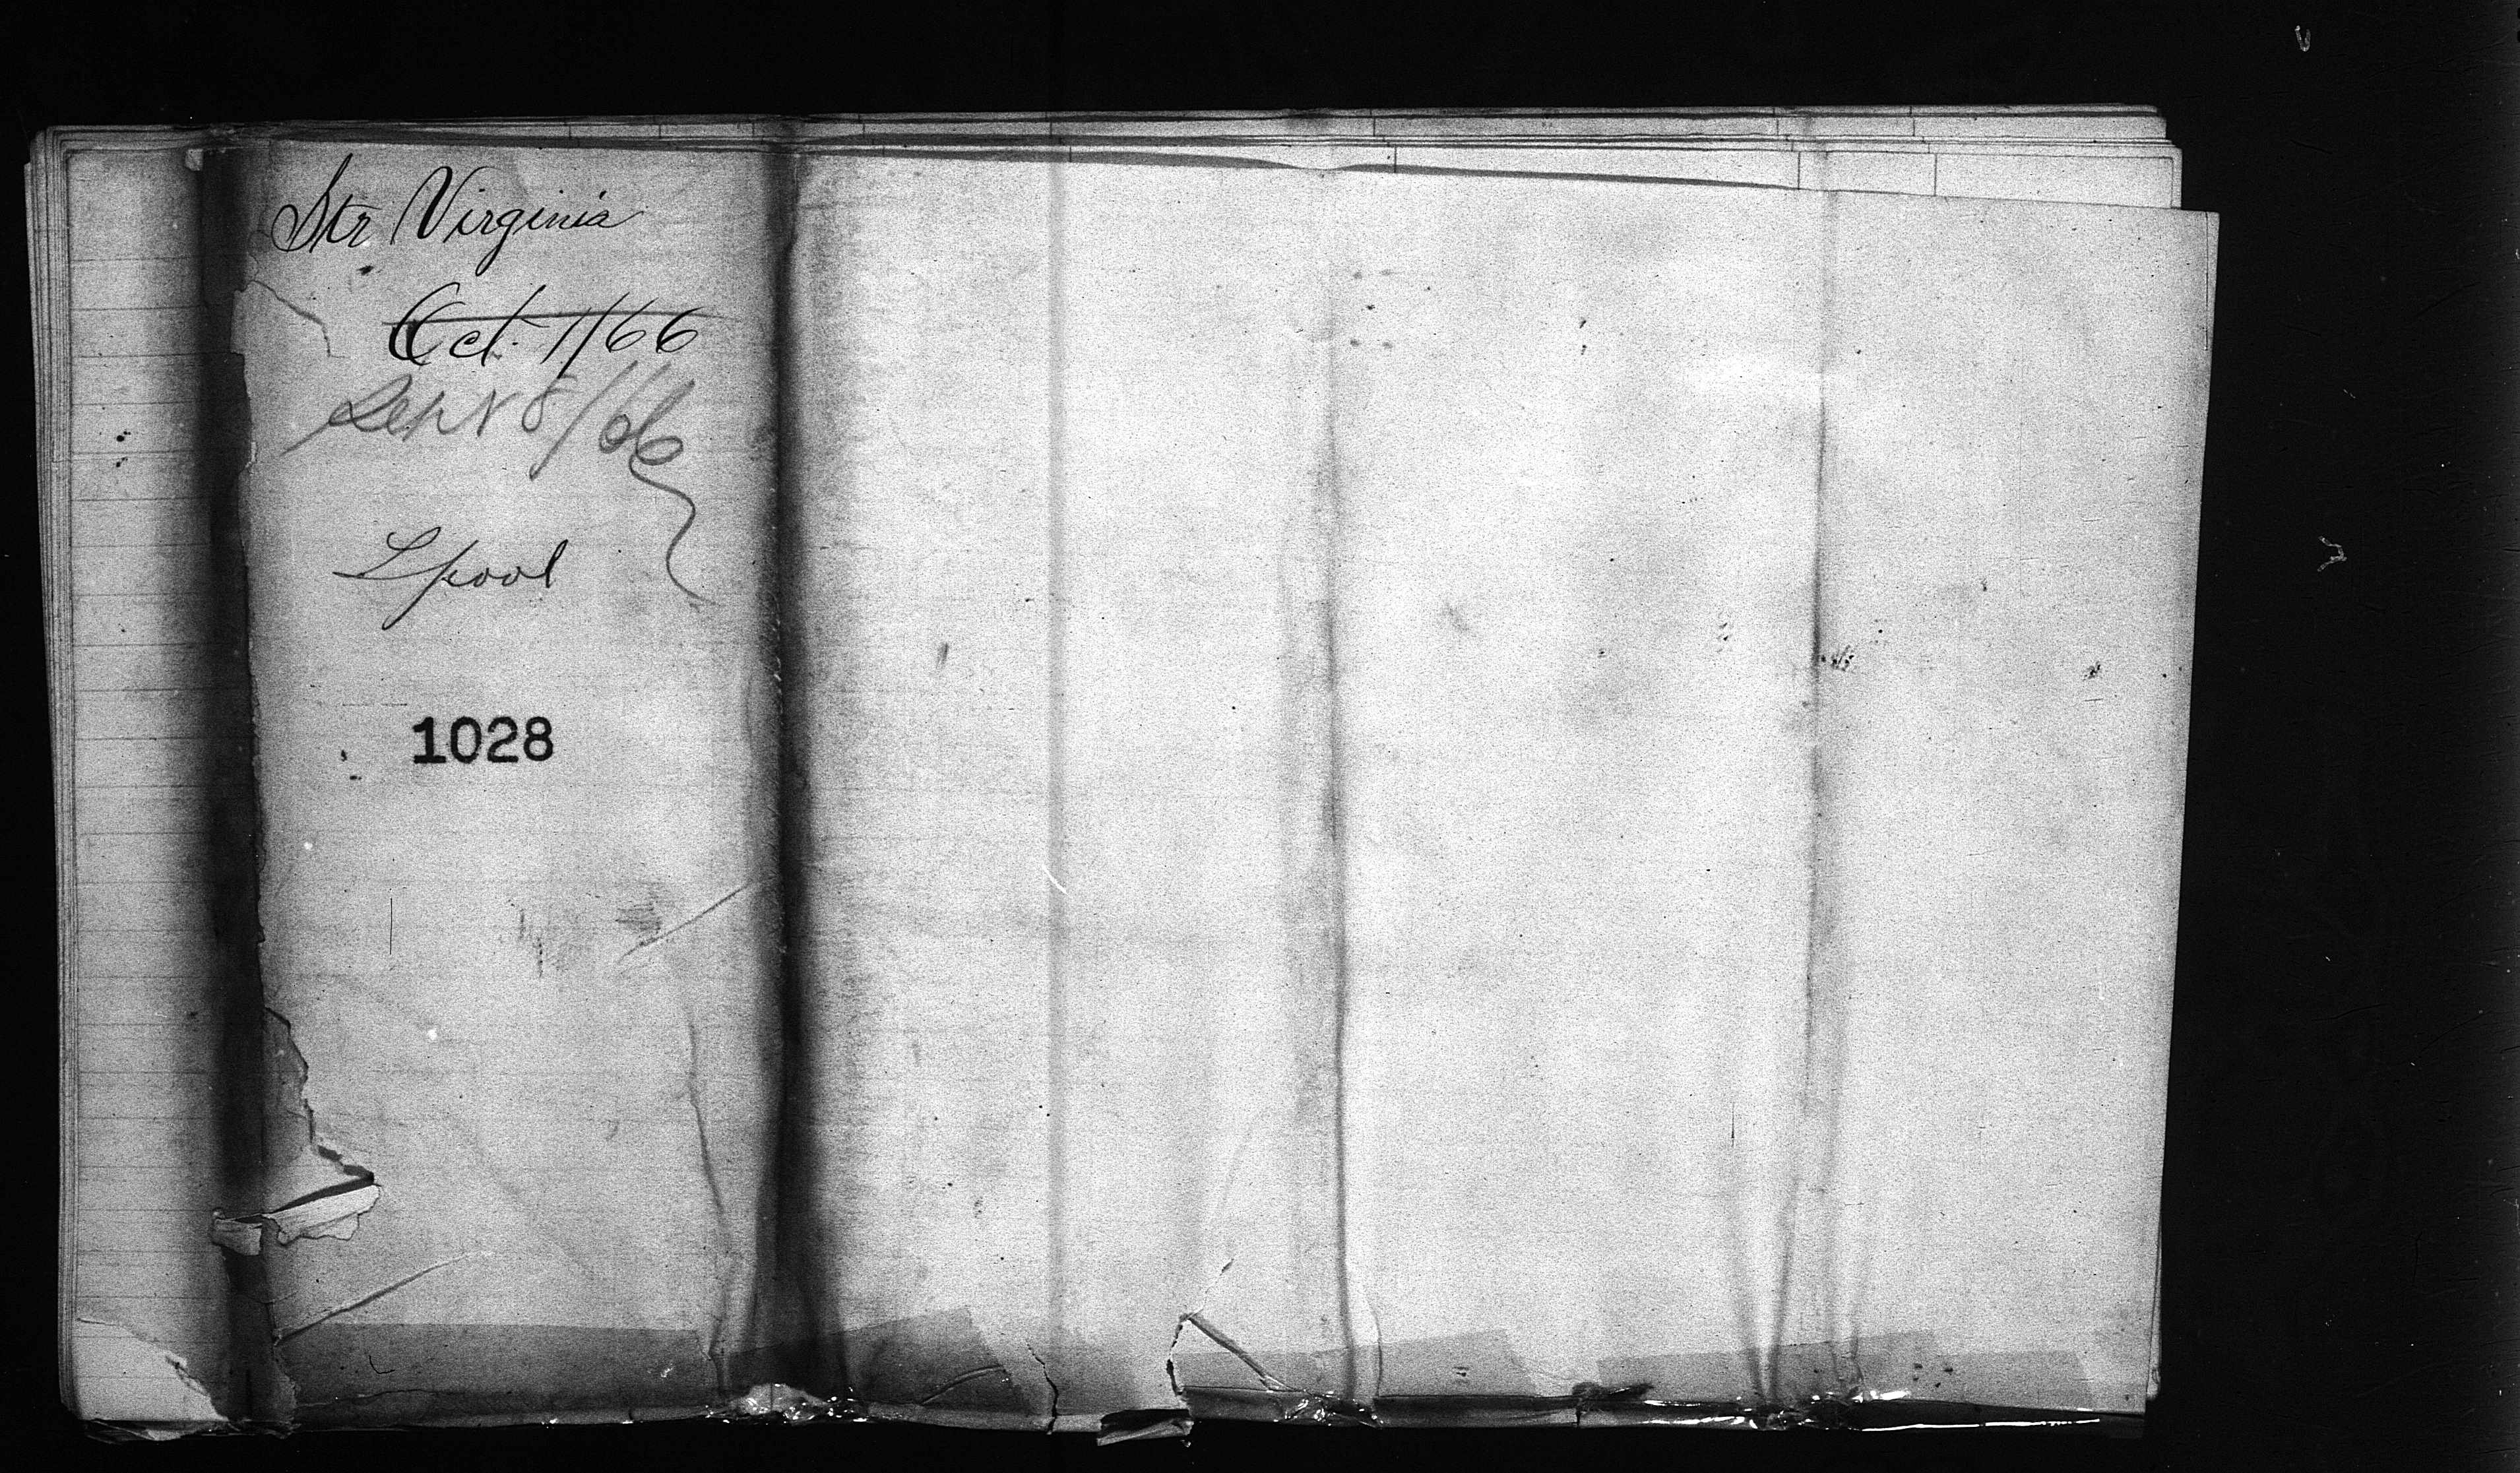 Str Virginia
Oct. 1/66
Sept 8/66
Lpool
1028